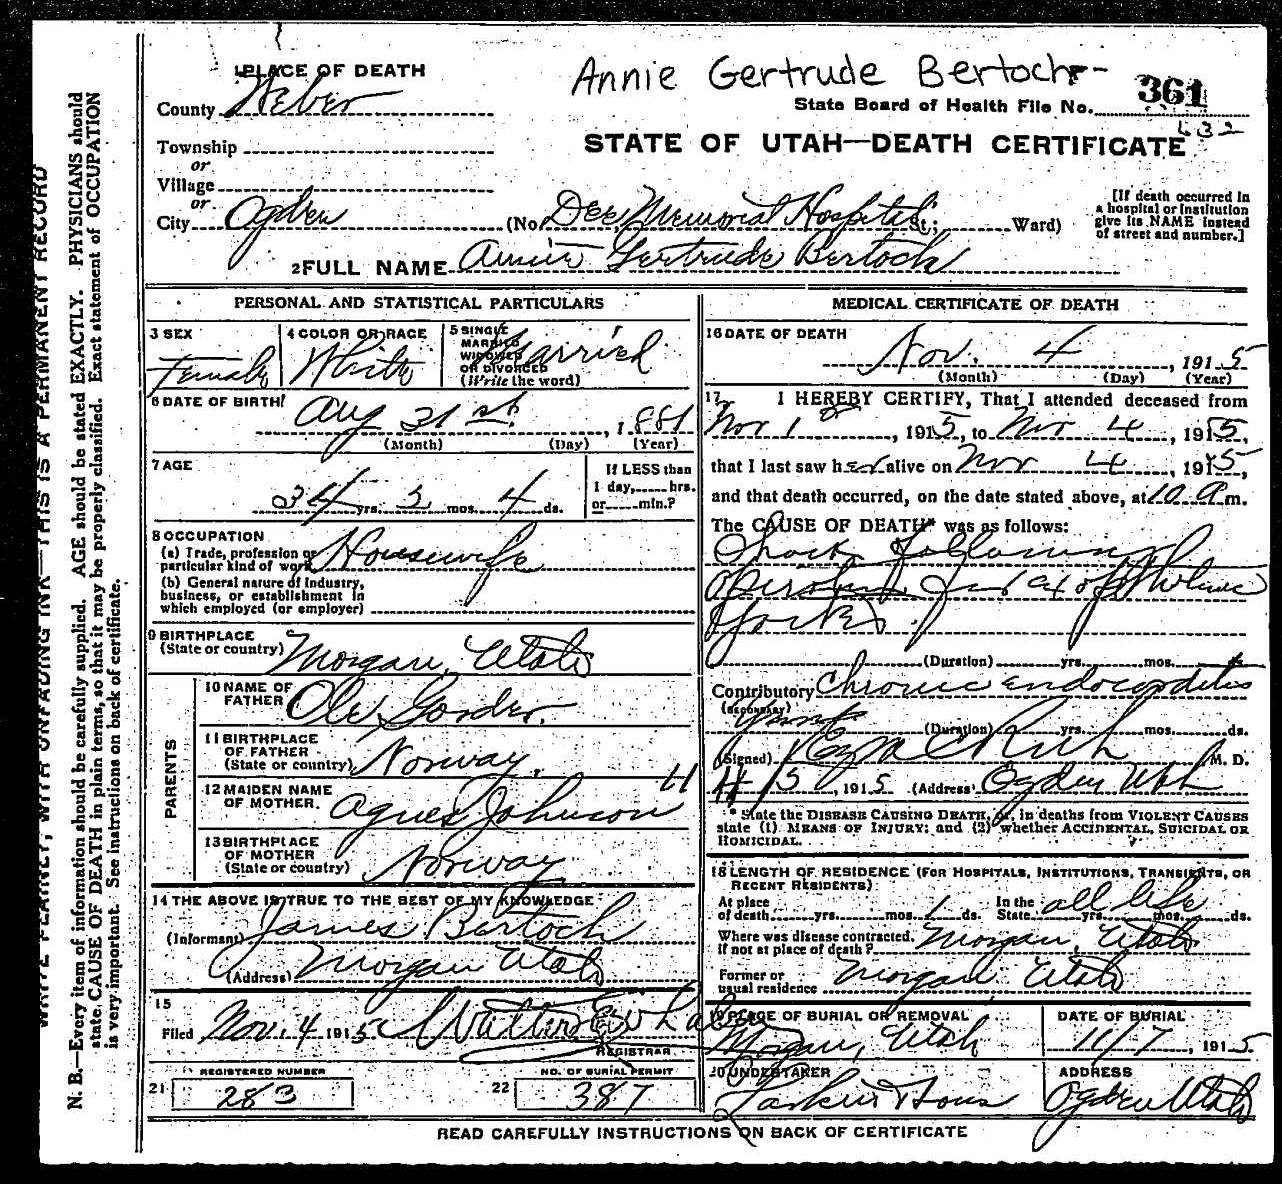 Annie Gertrude Bertoch
1 PLACE OF DEATH
County Weber
State Board of Health File No. 361
632
STATE OF UTAH—DEATH CERTIFICATE
Township
or
Village
or
City Ogden (No. Dee Memorial Hospital St; Ward)
[If death occurred in
a hospital or institution
give its NAME instead
of street and number.]
2 FULL NAME Annie Gertrude Bertoch
PERSONAL AND STATISTICAL PARTICULARS
3 SEX
Female
4 COLOR OR RACE
White
5 SINGLE
MARRIED
WIDOWED
OR DIVORCED
(Write the word)
Married
6 DATE OF BIRTH
Aug 31st, 1881
(Month) (Day) (Year)
7 AGE
34 yrs. 2 mos. 4 ds.
If LESS than
1 day, hrs.
or min.?
8 OCCUPATION
(a) Trade, profession or
particular kind of work Housewife
(b) General nature of Industry,
business, or establishment in
which employed (or employer)
9 BIRTHPLACE
(State or country) Morgan, Utah
PARENTS
10 NAME OF
FATHER Ole Gorder.
11 BIRTHPLACE
OF FATHER
(State or country) Norway.
12 MAIDEN NAME
OF MOTHER. Agnes Johnson
13 BIRTHPLACE
OF MOTHER
(State or country) Norway
14 THE ABOVE IS TRUE TO THE BEST OF MY KNOWLEDGE
(Informant) James Bertoch
(Address) Morgan Utah
15
Filed Nov. 4 1915 Walter
REGISTRAR
REGISTERED NUMBER
21 283
NO. OF BURIAL PERMIT
22 387
MEDICAL CERTIFICATE OF DEATH
16 DATE OF DEATH
Nov. 4, 1915
(Month) (Day) (Year)
17 I HEREBY CERTIFY, That I attended deceased from
Nov 1, 1915, to Nov 4, 1915,
that I last saw her alive on Nov 4, 1915,
and that death occurred, on the date stated above, at 10 a m.
The CAUSE OF DEATH* was as follows:
Shock following
operation
(Duration) yrs. mos.
Contributory Chronic endocarditis
(SECONDARY)
(Duration) yrs. mos. ds.
(Signed) Ezra C Rich M. D.
11/5, 1915 (Address) Ogden Utah
* State the DISEASE CAUSING DEATH, or, in deaths from VIOLENT CAUSES
state (1) MEANS OF INJURY; and (2) whether ACCIDENTAL, SUICIDAL OR
HOMICIDAL.
18 LENGTH OF RESIDENCE (FOR HOSPITALS, INSTITUTIONS, TRANSIENTS, OR
RECENT RESIDENTS)
At place
of death yrs. mos. 1 ds. In the
State all life yrs. mos. ds.
Where was disease contracted,
if not at place of death? Morgan, Utah
Former or
usual residence Morgan, Utah
19 PLACE OF BURIAL OR REMOVAL
Morgan, Utah
DATE OF BURIAL
11/7, 1915
20 UNDERTAKER
Larkin & Sons
ADDRESS
Ogden Utah
READ CAREFULLY INSTRUCTIONS ON BACK OF CERTIFICATE
WRITE PLAINLY, WITH UNFADING INK—THIS IS A PERMANENT RECORD
N. B.—Every item of information should be carefully supplied. AGE should be stated EXACTLY. PHYSICIANS should
state CAUSE OF DEATH in plain terms, so that it may be properly classified. Exact statement of OCCUPATION
is very important. See instructions on back of certificate.